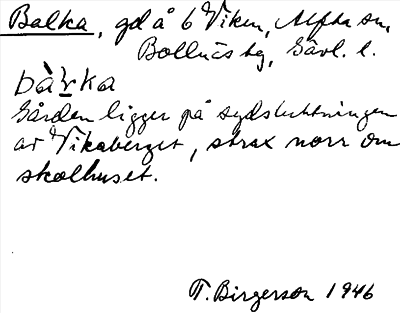 Balka, gd å 6 Viken, Alfta sn,
Bollnäs tg, Gävl. l.
bàlka
Gården ligger på sydsluttningen
av Vikaberget, strax norr om
skolhuset.
T. Birgerson 1946